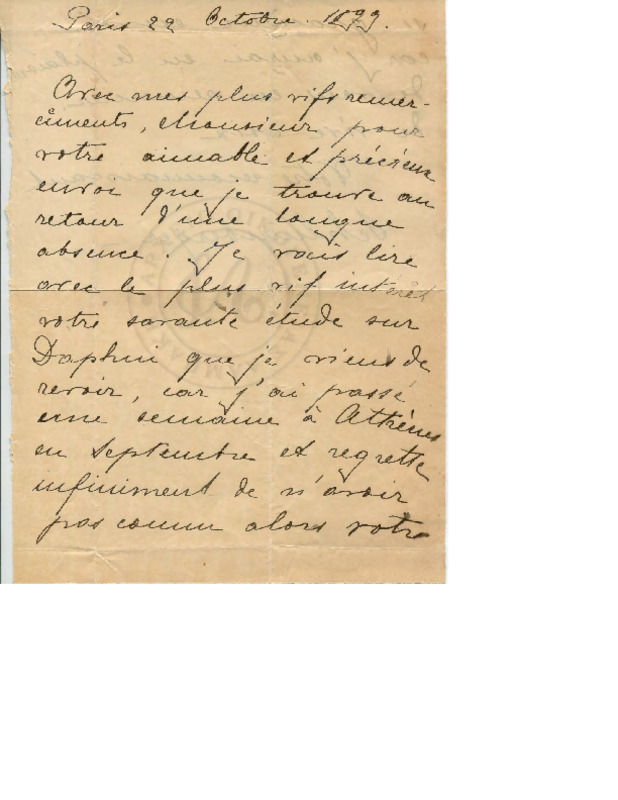 Paris 22 Octobre. 1899.
Avec mes plus vifs remer-
ciments, Monsieur pour
votre aimable et précieux
envoi que je trouve au
retour d'une longue
absence. Je vais lire
avec le plus vif intérêt
votre savante étude sur
Daphni que je viens de
revoir, car j'ai passé
une semaine à Athènes
en Septembre et regrette
infiniment de n'avoir
pas connu alors votre